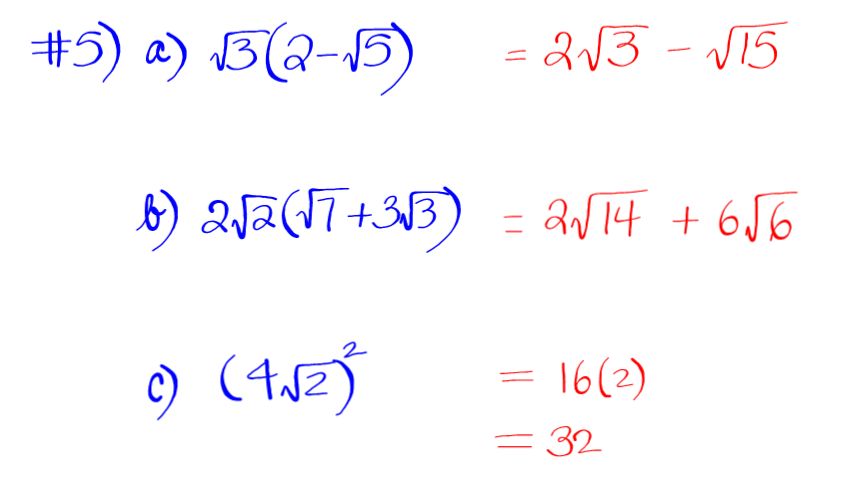 #5) a) √3(2-√5) = 2√3 - √15
b) 2√2(√7+3√3) = 2√14 + 6√6
c) (4√2)² = 16(2)
= 32